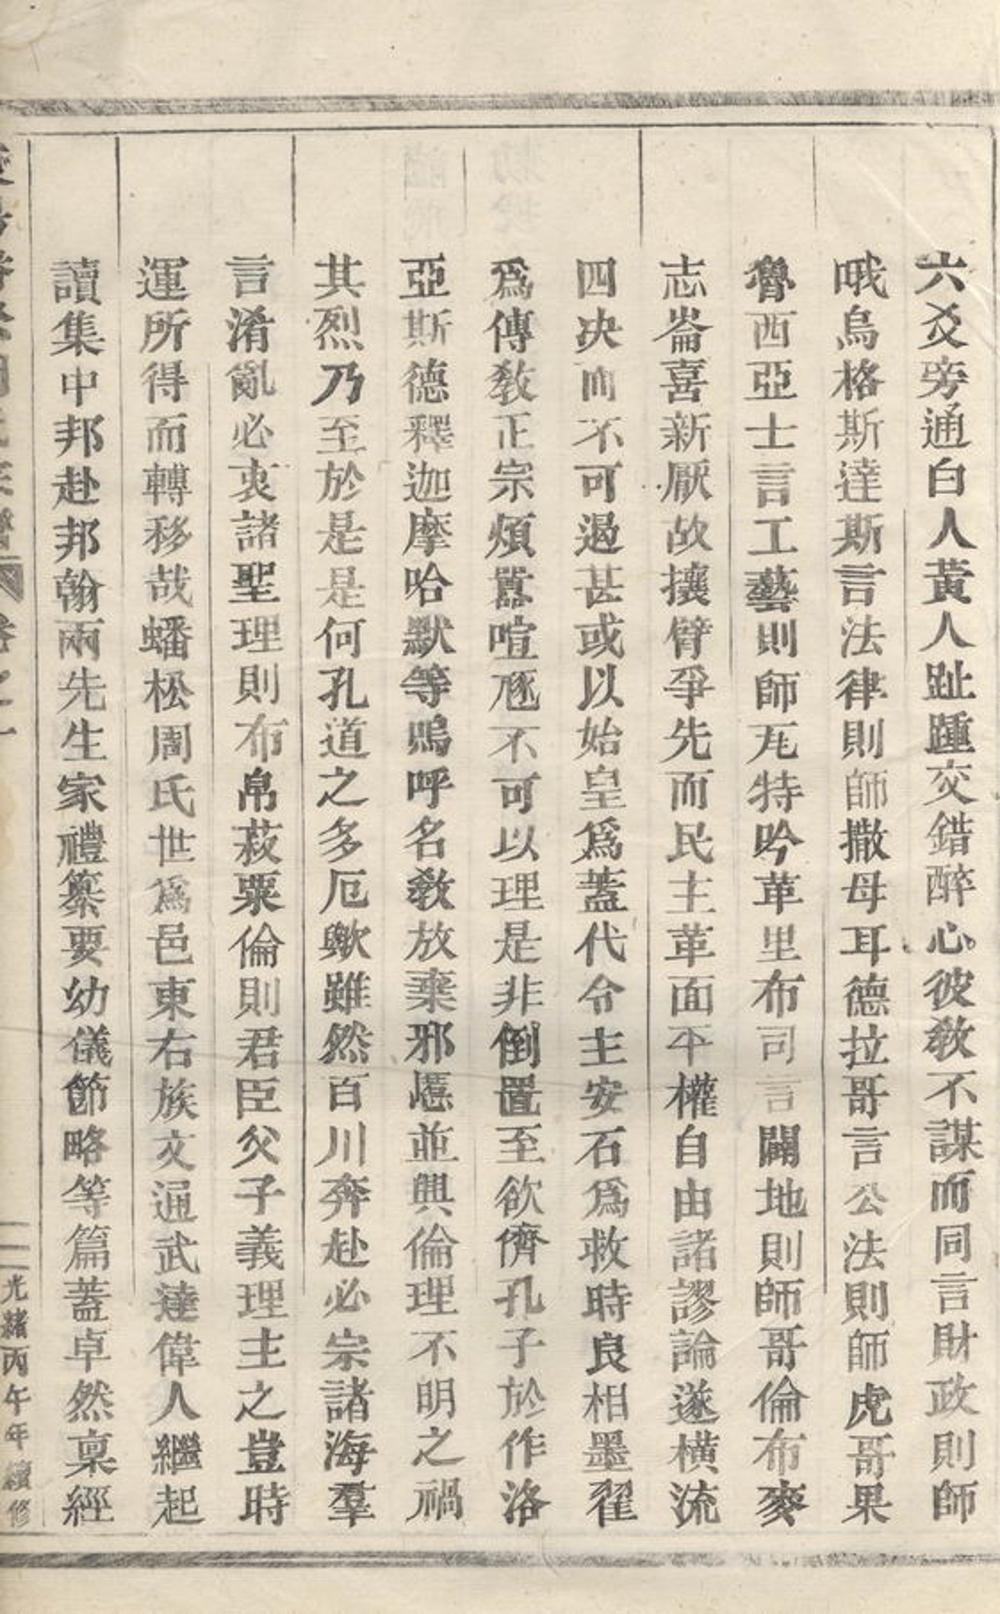 六爻旁通白人黃人趾踵交錯醉心彼敎不謀而同言財政則師
哦烏格斯達斯言法律則師撒母耳德拉哥言公法則師虎哥果
魯西亞士言工藝則師瓦特吟革里布司言闢地則師哥倫布麥
志崙喜新厭故攘臂爭先而民主革面平權自由諸謬論遂橫流
四决而不可遏甚或以始皇爲蓋代令主安石爲救時良相墨翟
爲傳敎正宗煩囂喧豗不可以理是非倒置至欲儕孔子於作洛
亞斯德釋迦摩哈默等嗚呼名敎放棄邪慝並興倫理不明之禍
其烈乃至於是是何孔道之多厄歟雖然百川奔赴必宗諸海羣
言淆亂必衷諸聖理則布帛菽粟倫則君臣父子義理主之豈時
運所得而轉移哉蟠松周氏世爲邑東右族文通武達偉人繼起
讀集中邦赴邦翰兩先生家禮纂要幼儀節略等篇蓋卓然稟經
卷之一
光緒丙午年續修